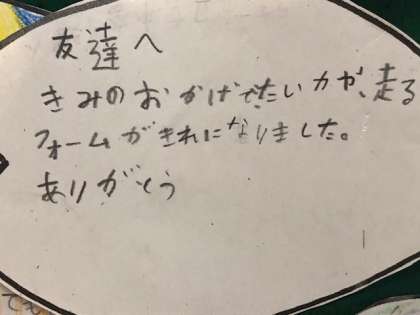 友達へ
きみのおかげでたいカや、走る
フォームがきれになりました。
ありがとう
ても